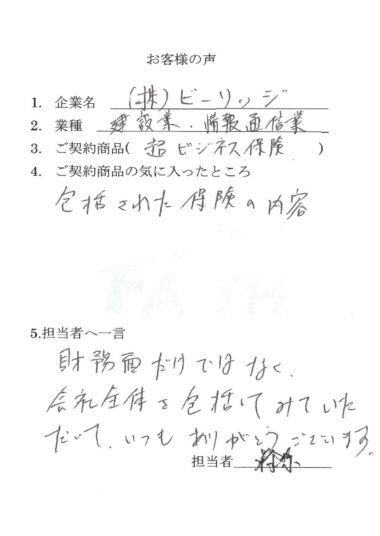 お客様の声
1. 企業名 (株)ビーリッジ
2. 業種 建設業・情報通信業
3. ご契約商品( 超ビジネス保険 )
4. ご契約商品の気に入ったところ
包括された保険の内容
5.担当者へ一言
財務面だけではなく、
会社全体を包括してみていた
だいて、いつもありがとうございます。
担当者